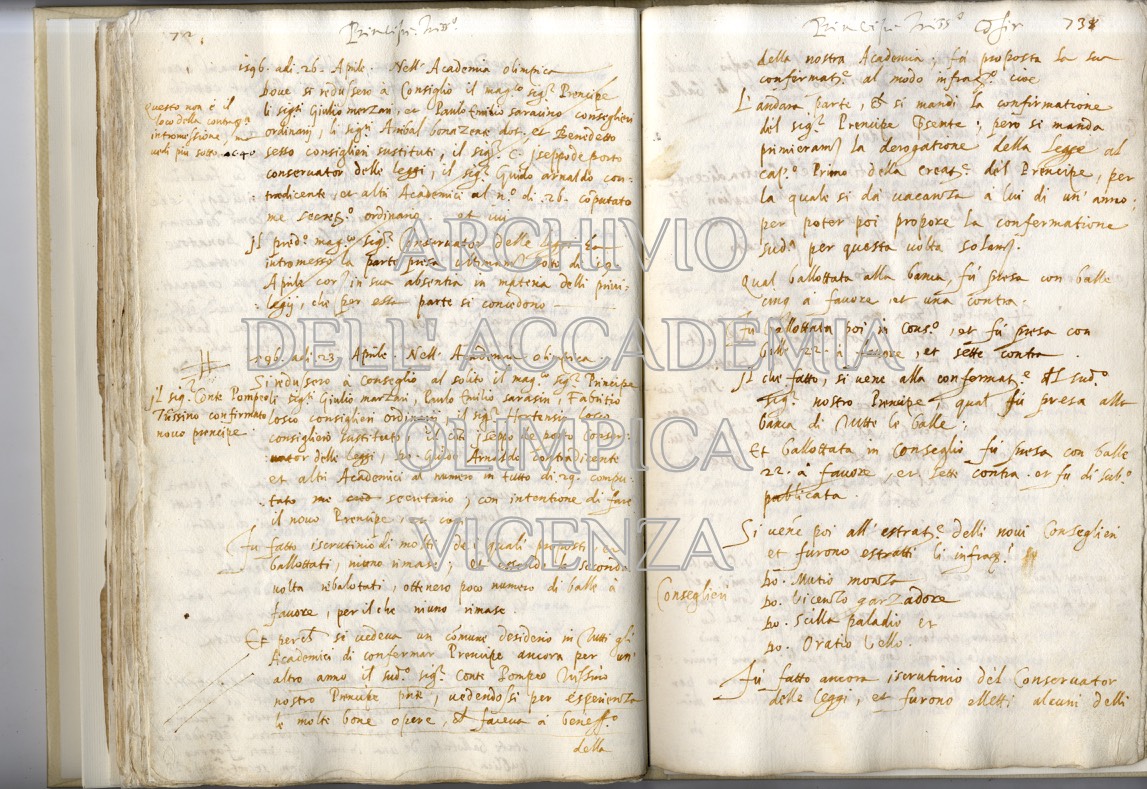 72
Prencipe Triss.º
1596. adi. 26. Aprile. Nell' Academia olimpica
Dove si redussero à Consiglio il mag.co sig.r Prencipe
li sig.ri Giulio merzari, et Paulo Emilio saraxino consiglieri
ordinarij, li sig.ri Anibal bonazente dot. et Benedetto
sesso consiglieri sustituti, il sig.r C. Iseppo de porto
conservator delle leggi, il sig.r Guido arnaldo con-
tradicente, et altri Academici al n.º di .26. cõputato
me secret.º ordinario. et
Questo non è il
loco della contrasc.ta
intromessione, ma
vedi più sotto. ac 40
Il pred.º mag.co sig.r Conservator delle leggi ha
intromesso la parte presa ultimam.te sotto di 19.
Aprile cor.te in sua absentia in materia delli privi-
legij, che per essa parte si concedono
1596. adi. 23. Aprile. Nell' Academia olimpica
Si redussero à conseglio al solito il mag.co sig.r Principe
li sig.ri Giulio merzari, Paulo Emilio sarasin Fabritio
losco consiglieri ordinarij, il sig.r Hortensio losco
consigliero sustituto il Co: Iseppo de porto Conser-
vator delle leggi, Do. Guido Arnaldo contradicente
et altri Academici al numero in tutto di .29. compu-
tato me secretario; con intentione di fare
il novo Prencipe; et così
Il sig.r Conte Pompeo
Trissino confirmato
novo prencipe
Fu fatto iscrutinio di molti de i quali proposti et
ballottati, niuno rimase; et essendo la seconda
volta ribalotati, ottenero poco numero di balle à
favore, per il che niuno rimase.
Et perchè si vedeva un comune desiderio in tutti gl'
Academici di confermar Prencipe ancora per un'
altro anno il sud.º sig.r Conte Pompeo Trissino
nostro Prencipe pñte, vedendosi per esperienza
le molte bone opere, ch' faceva à beneff.º
della
Prencipe Triss.º Cõfir
73
della nostra Academia; fù proposta la sua
confermat.e al modo infras.to cioè
L'andarà parte, ch' si mandi la confirmatione
del sig.r Prencipe presente; però si manda
primieram.te la derogatione della legge al
cap.º Primo della creat.e del Prencipe, per
la quale si dà vacanza à lui di un' anno;
per poter poi propore la confermatione
sud.ta per questa volta solam.te.
Qual ballottata alla banca, fù presa con balle
cinq à favore, et una contra.
Fù ballottata poi in Cons.º, et fù presa con
balle 22. à favore, et sette contra.
Il che fatto, si vene alla confermat.e del sud.º
sig.r nostro Prencipe qual fù presa alla
banca di tutte le balle;
Et ballottata in conseglio fù presa con balle
22. à favore, et sette contra. et fù di sub.º
publicata.
Si vene poi all' estrat.e delli novi Conseglieri
et furono estratti li infras.ti
Conseglieri
Do. Mutio monza
Do. Vicenzo garzadore
Do. Scilla paladio et
Do. Oratio Vello.
Fù fatto ancora iscrutinio del Conservator
delle leggi, et furono eletti alcuni delli
ARCHIVIO
DELL'ACCADEMIA
OLIMPICA
VICENZA